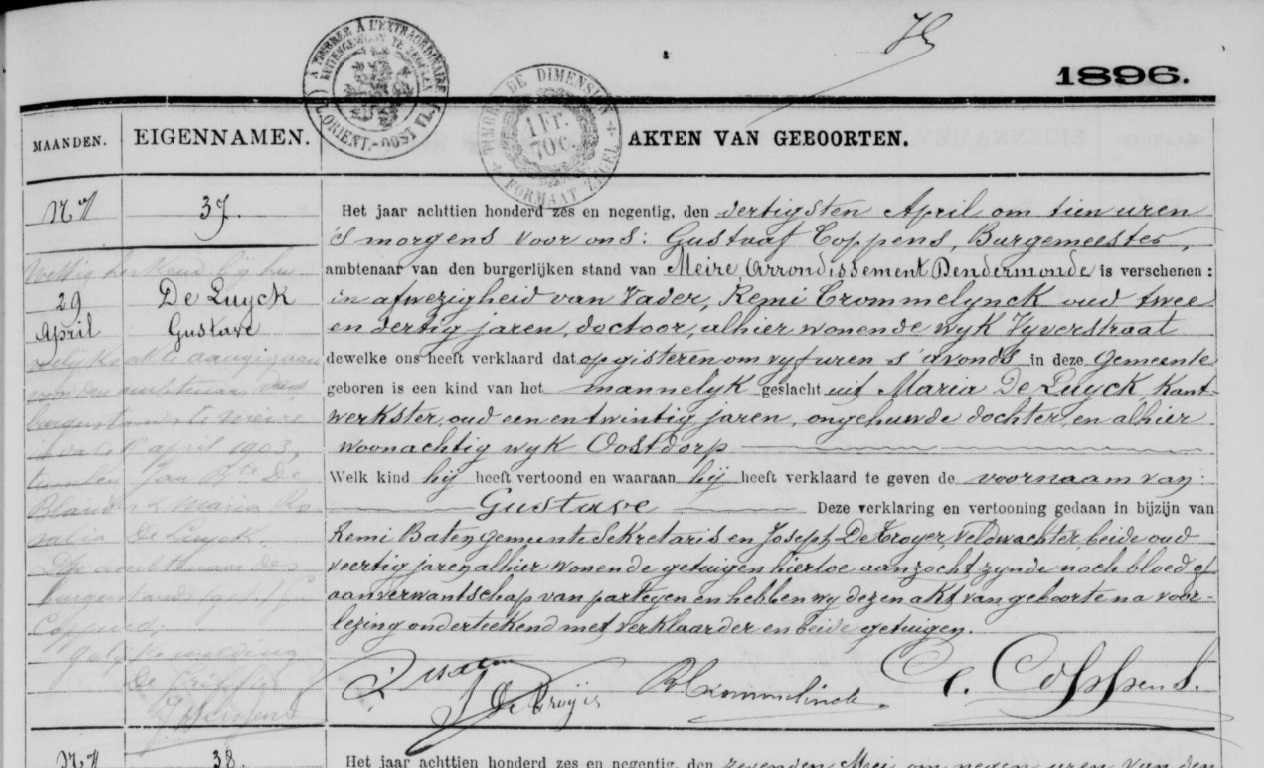 A TIMBRE A L'EXTRAORDINAIRE
BUITENGEWOON TE ZEGELEN
FL. ORIENT.-OOST VL.
TIMBRE DE DIMENSION
1 Fr.
70 C.
FORMAAT ZEGEL
1896.
MAANDEN. EIGENNAMEN. AKTEN VAN GEBOORTEN.
37. Het jaar achttien honderd zes en negentig, den dertigsten April om tien uren
's morgens voor ons: Gustaaf Coppens, Burgemeester,
ambtenaar van den burgerlijken stand van Meire, Arrondissement Dendermonde is verschenen:
29 De Luyck in afwezigheid van Vader, Remi Crommelynck oud twee
April Gustave en dertig jaren, doctoor, alhier wonende wyk Vyverstraat
dewelke ons heeft verklaard dat op gisteren om vyf uren s'avonds in deze Gemeente
geboren is een kind van het mannelyk geslacht uit Maria De Luyck, Kant-
werkster, oud een en twintig jaren, ongehuwde dochter, en alhier
woonachtig wyk Oostdorp
Welk kind hij heeft vertoond en waaraan hij heeft verklaard te geven de voornaam van:
Gustave Deze verklaring en vertooning gedaan in bijzijn van
Remi Baten, gemeente Sekretaris en Joseph De Troyer, Veldwachter, beide oud
veertig jaren, alhier wonende getuigen hiertoe aanzocht zynde noch bloed of
aanverwantschap van partyen en hebben wy dezen akt van geboorte na voor-
lezing onderteekend met verklaarder en beide getuigen.
april 1903,
De Luyck.
G. Coppens.
38. Het jaar achttien honderd zes en negentig, den zevenden Mei om negen uren van den